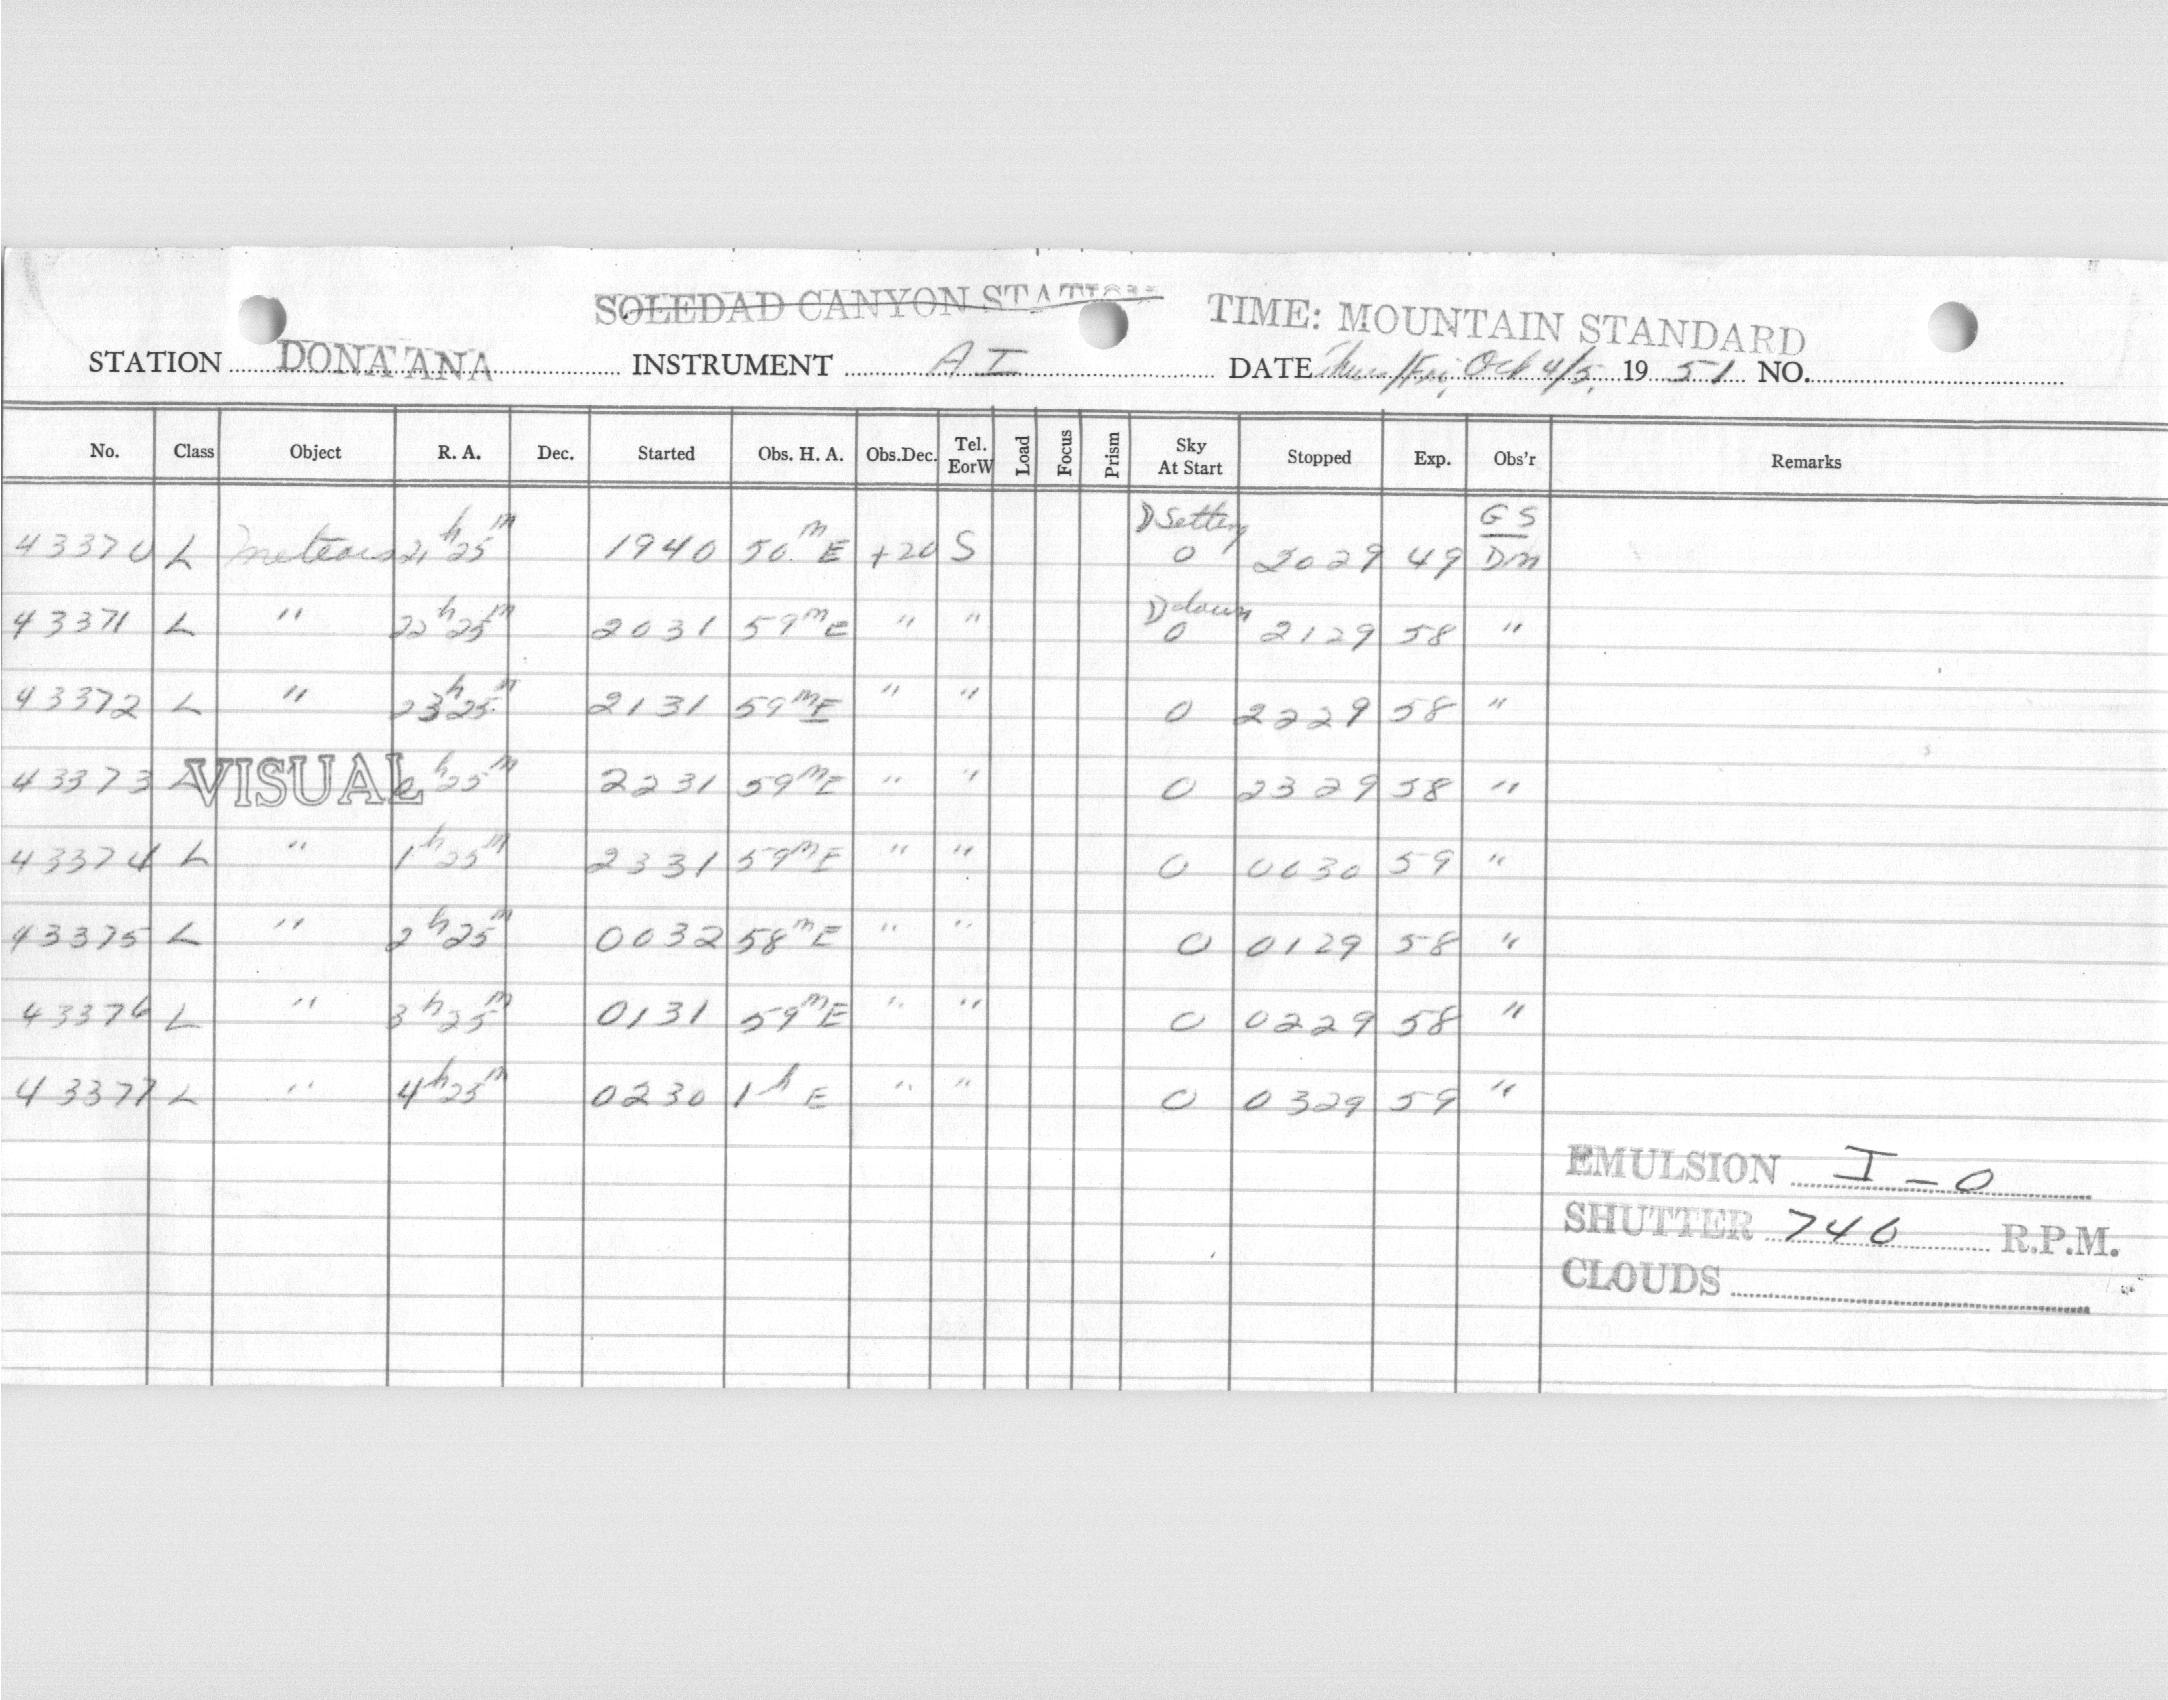 SOLEDAD CANYON STATION TIME: MOUNTAIN STANDARD
STATION DONA ANA INSTRUMENT AI DATE Thurs/Fri, Oct 4/5, 1951 NO.
No. Class Object R. A. Dec. Started Obs. H. A. Obs.Dec. Tel. EorW Load Focus Prism Sky At Start Stopped Exp. Obs'r Remarks
43370 L meteors 21h25m 1940 50mE +20 S D Setting 0 2029 49 GS DM
43371 L " 22h25m 2031 59mE " " D down 0 2129 58 "
43372 L " 23h25m 2131 59mE " " 0 2229 58 "
43373 L VISUAL 0h25m 2231 59mE " " 0 2329 58 "
43374 L " 1h25m 2331 59mE " " 0 0030 59 "
43375 L " 2h25m 0032 58mE " " 0 0129 58 "
43376 L " 3h25m 0131 59mE " " 0 0229 58 "
43377 L " 4h25m 0230 1hE " " 0 0329 59 "
EMULSION I-0
SHUTTER 740 R.P.M.
CLOUDS